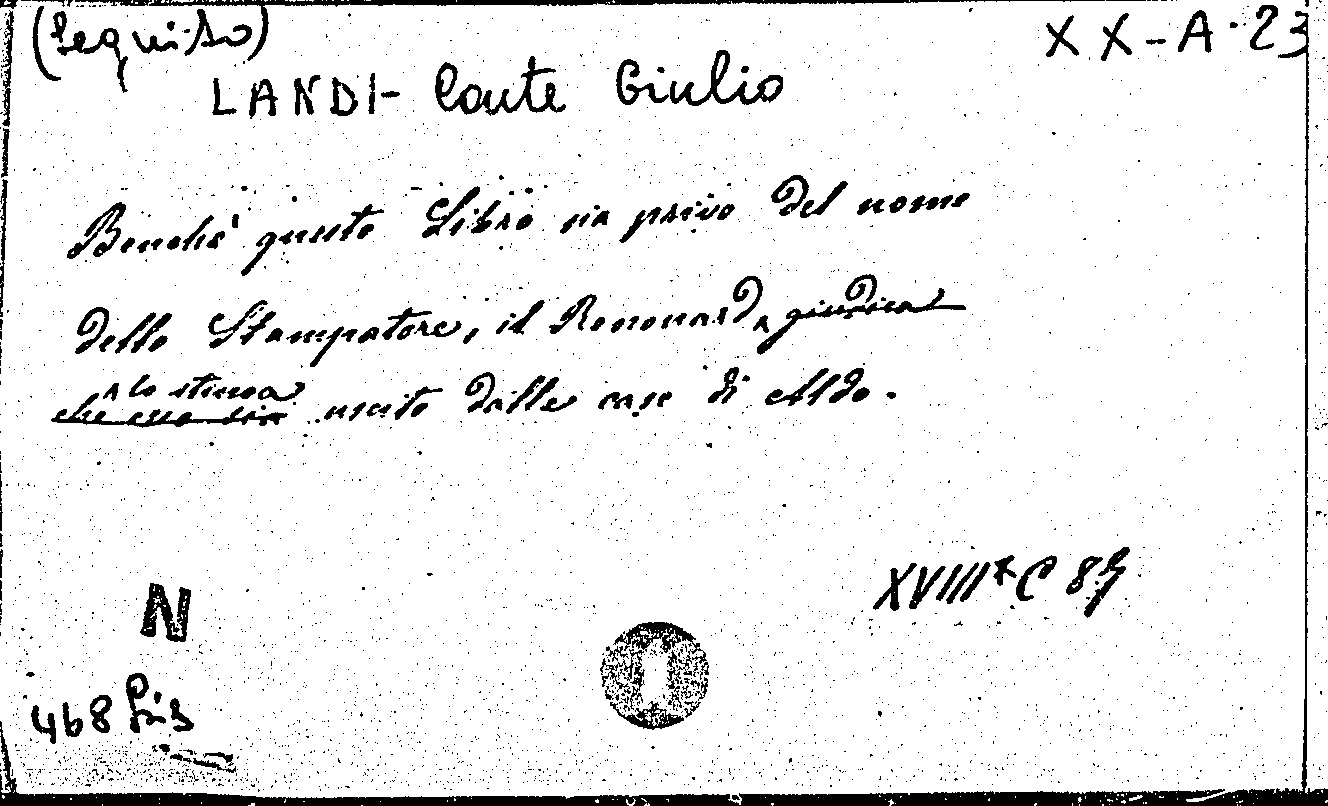 (Seguito) XX-A-23
LANDI- Conte Giulio
Benchè questo Libro sia privo del nome
dello Stampatore, il Renouard giudica
lo stima
che esso sia uscito dalle case di Aldo.
XVIII* C 89
N
468 bis